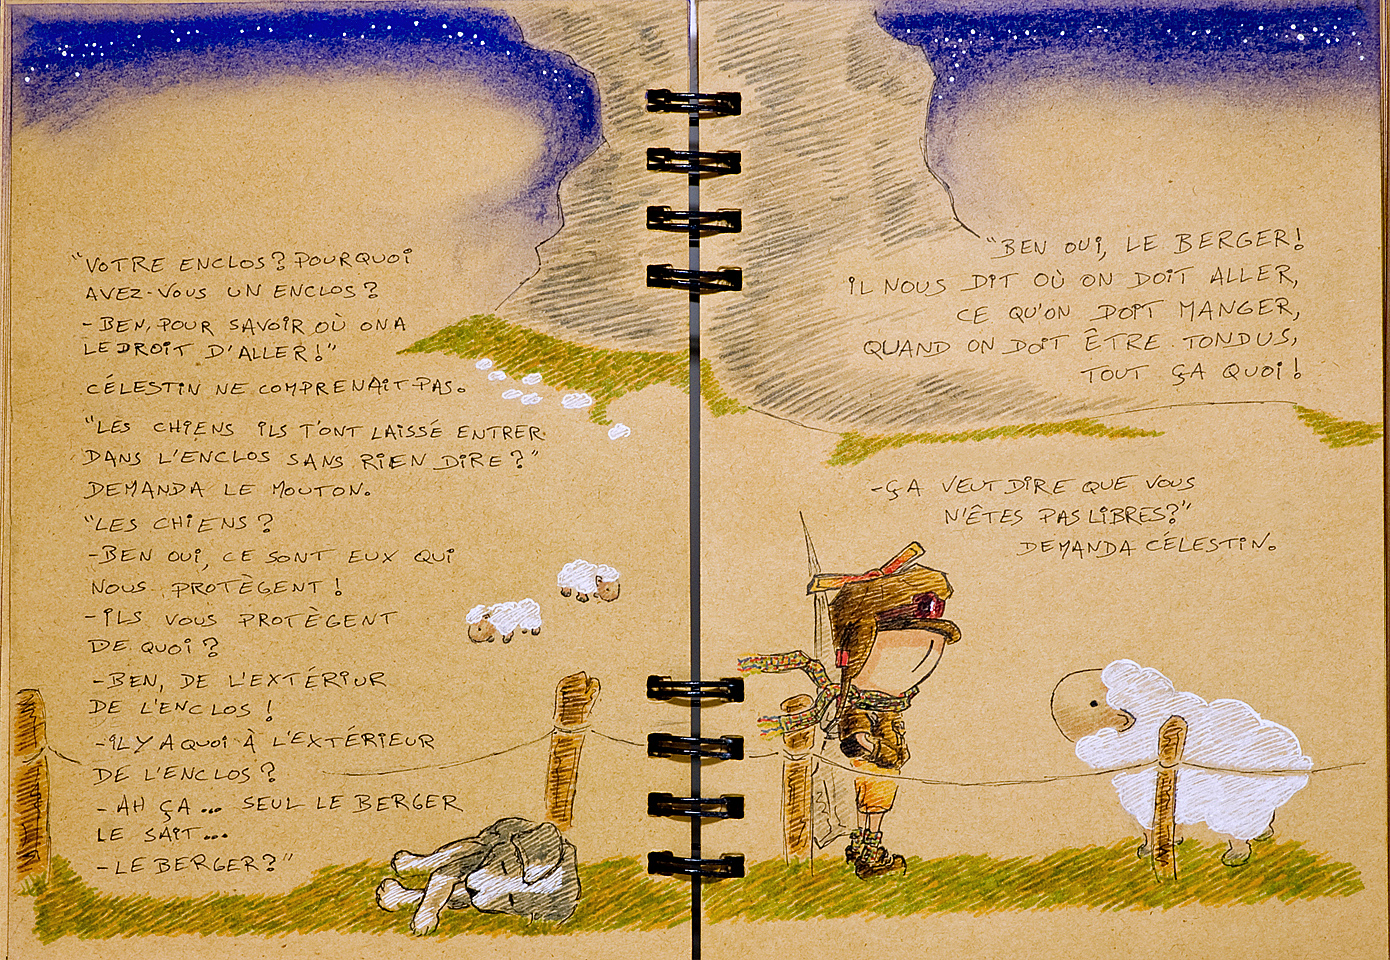 "VOTRE ENCLOS? POURQUOI
AVEZ-VOUS UN ENCLOS?
- BEN, POUR SAVOIR OÙ ON A
LE DROIT D'ALLER!"
CÉLESTIN NE COMPRENAIT PAS.
"LES CHIENS ILS T'ONT LAISSÉ ENTRER
DANS L'ENCLOS SANS RIEN DIRE?"
DEMANDA LE MOUTON.
"LES CHIENS?
- BEN OUI, CE SONT EUX QUI
NOUS PROTÈGENT!
- ILS VOUS PROTÈGENT
DE QUOI?
- BEN, DE L'EXTÉRIUR
DE L'ENCLOS!
- IL Y A QUOI À L'EXTÉRIEUR
DE L'ENCLOS?
- AH ÇA... SEUL LE BERGER
LE SAIT...
- LE BERGER?"
"BEN OUI, LE BERGER!
IL NOUS DIT OÙ ON DOIT ALLER,
CE QU'ON DOIT MANGER,
QUAND ON DOIT ÊTRE TONDUS,
TOUT ÇA QUOI!
- ÇA VEUT DIRE QUE VOUS
N'ÊTES PAS LIBRES?"
DEMANDA CÉLESTIN.